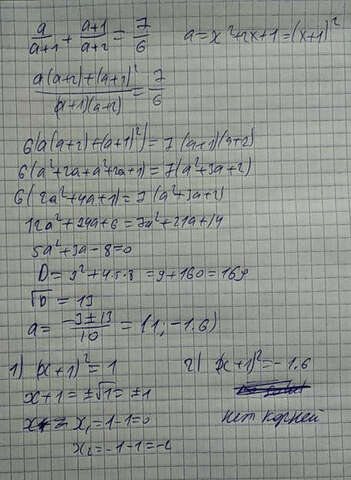 a/(a+1) + (a+1)/(a+2) = 7/6    a = x²+2x+1 = (x+1)²
(a(a+2)+(a+1)²)/((a+1)(a+2)) = 7/6
6(a(a+2)+(a+1)²) = 7(a+1)(a+2)
6(a²+2a+a²+2a+1) = 7(a²+3a+2)
6(2a²+4a+1) = 7(a²+3a+2)
12a²+24a+6 = 7a²+21a+14
5a²+3a-8=0
D = 3²+4·5·8 = 9+160=169
√D = 13
a = (-3±13)/10 = (1; -1.6)
1) (x+1)² = 1    2) (x+1)² = -1.6
x+1 = ±√1 = ±1
x₁ = 1-1=0    нет корней
x₂ = -1-1=-2